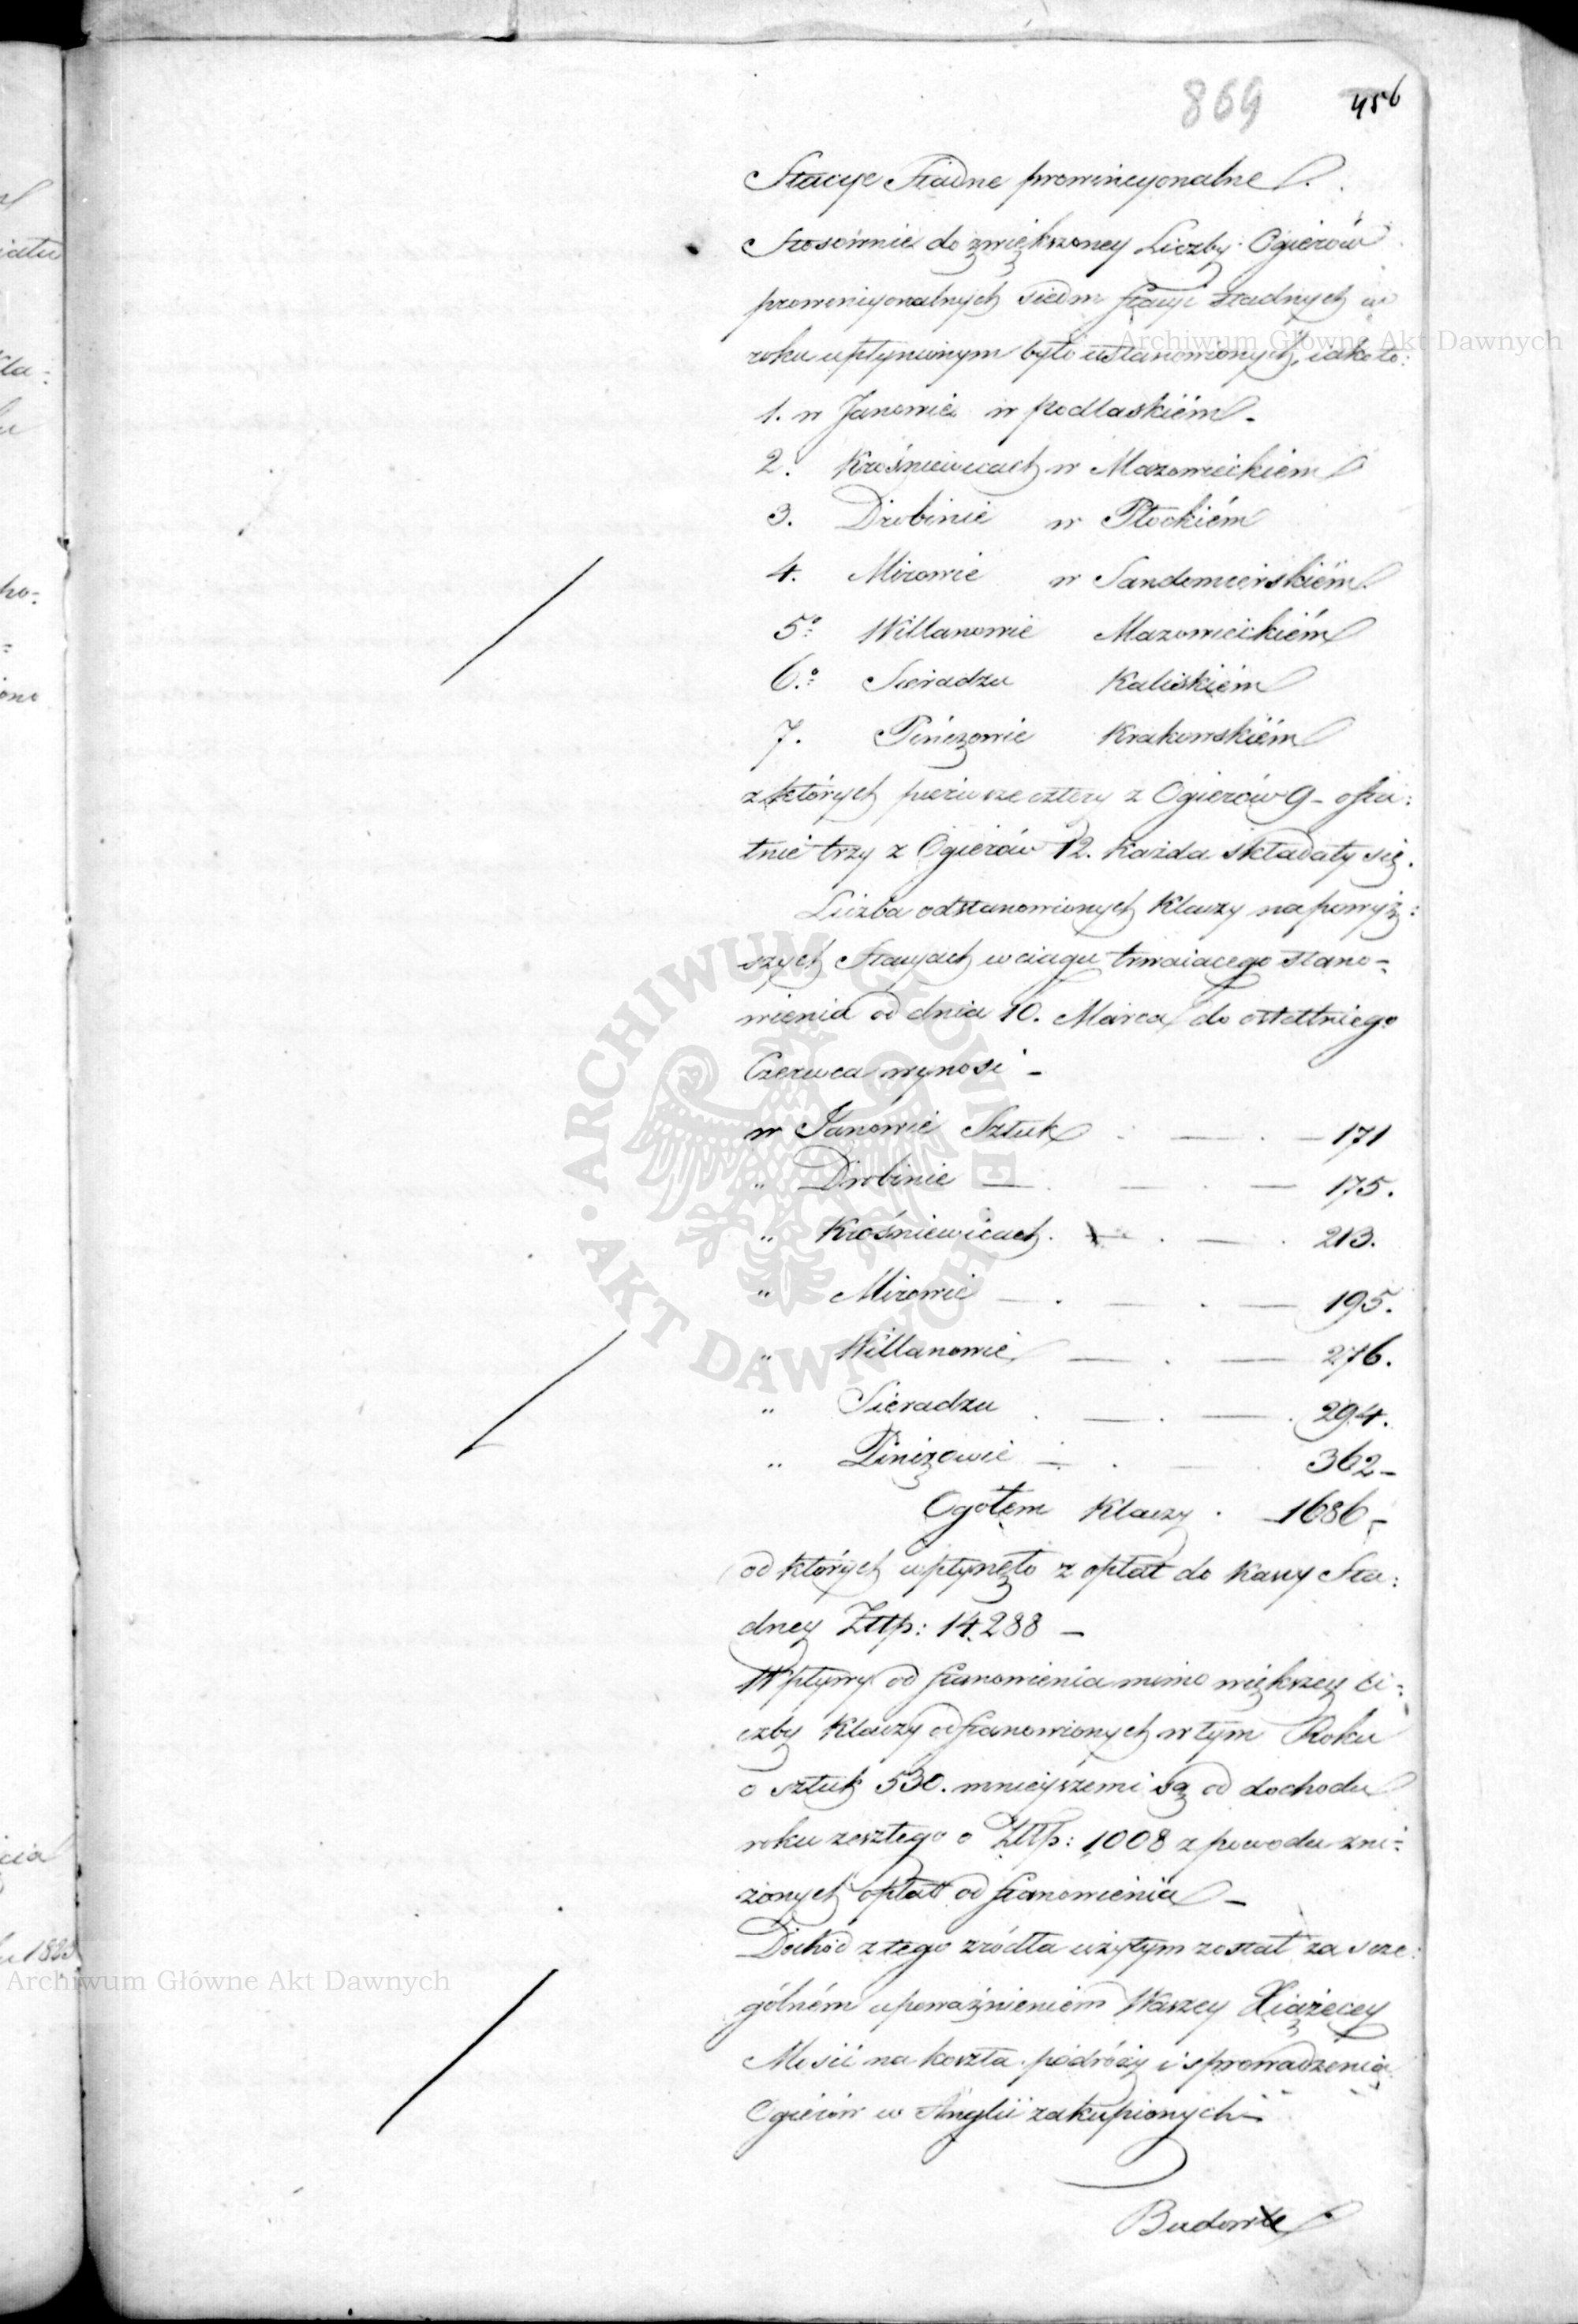 869 456
Stacye Stadne prowincyonalne
Stosownie do zwiększoney Liczby Ogierów
prowincyonalnych siedm stacyi stadnych w
roku upłynionym było ustanowionych, iako to:
1. w Janowie w podlaskiém -
2. Krośniewicach w Mazowieckiem
3. Drobinie w Płockiém
4. Mirowie w Sandomierskiém
5º Willanowie Mazowieckiém
6.º Sieradzu Kaliskiém
7. Pińczowie Krakowskiém
z których pierwsze cztery z Ogierów 9 - osta:
tnie trzy z Ogierów 12. Każda składały się.
Liczba odstanowionych Klaczy na powyż:
szych Stacyach w ciągu trwaiącego stano-
wienia od dnia 10. Marca do ostatniego
Czerwca wynosi -
w Janowie Sztuk . — . — 171
" Drobinie — . — . — 175.
" Krośniewicach . — . — . 213.
" Mirowie — . — . — 195.
" Willanowie — . — 276.
" Sieradzu . — . — . 294.
" Pinczowie — . — 362 -
Ogołem Klaczy . 1686 -
od których wpłynęło z opłat do Kassy Sta:
dney Złtp: 14,288 -
Wpływy od stanowienia mimo większey li-
czby Klaczy odstanowionych w tym Roku
o sztuk 530. mnieyszemi są od dochodu
roku zeszłego o Złtp: 1,008 z powodu zni-
żonych opłat od stanowienia -
Dochód z tego źródła użytym został za scze:
gólném upoważnieniem Waszey Xiążęcey
Mości na koszta podróży i sprowadzenia
Ogierów w Anglii zakupionych -
Budowle
Archiwum Główne Akt Dawnych
Archiwum Główne Akt Dawnych
ARCHIWUM GŁÓWNE · AKT DAWNYCH ·